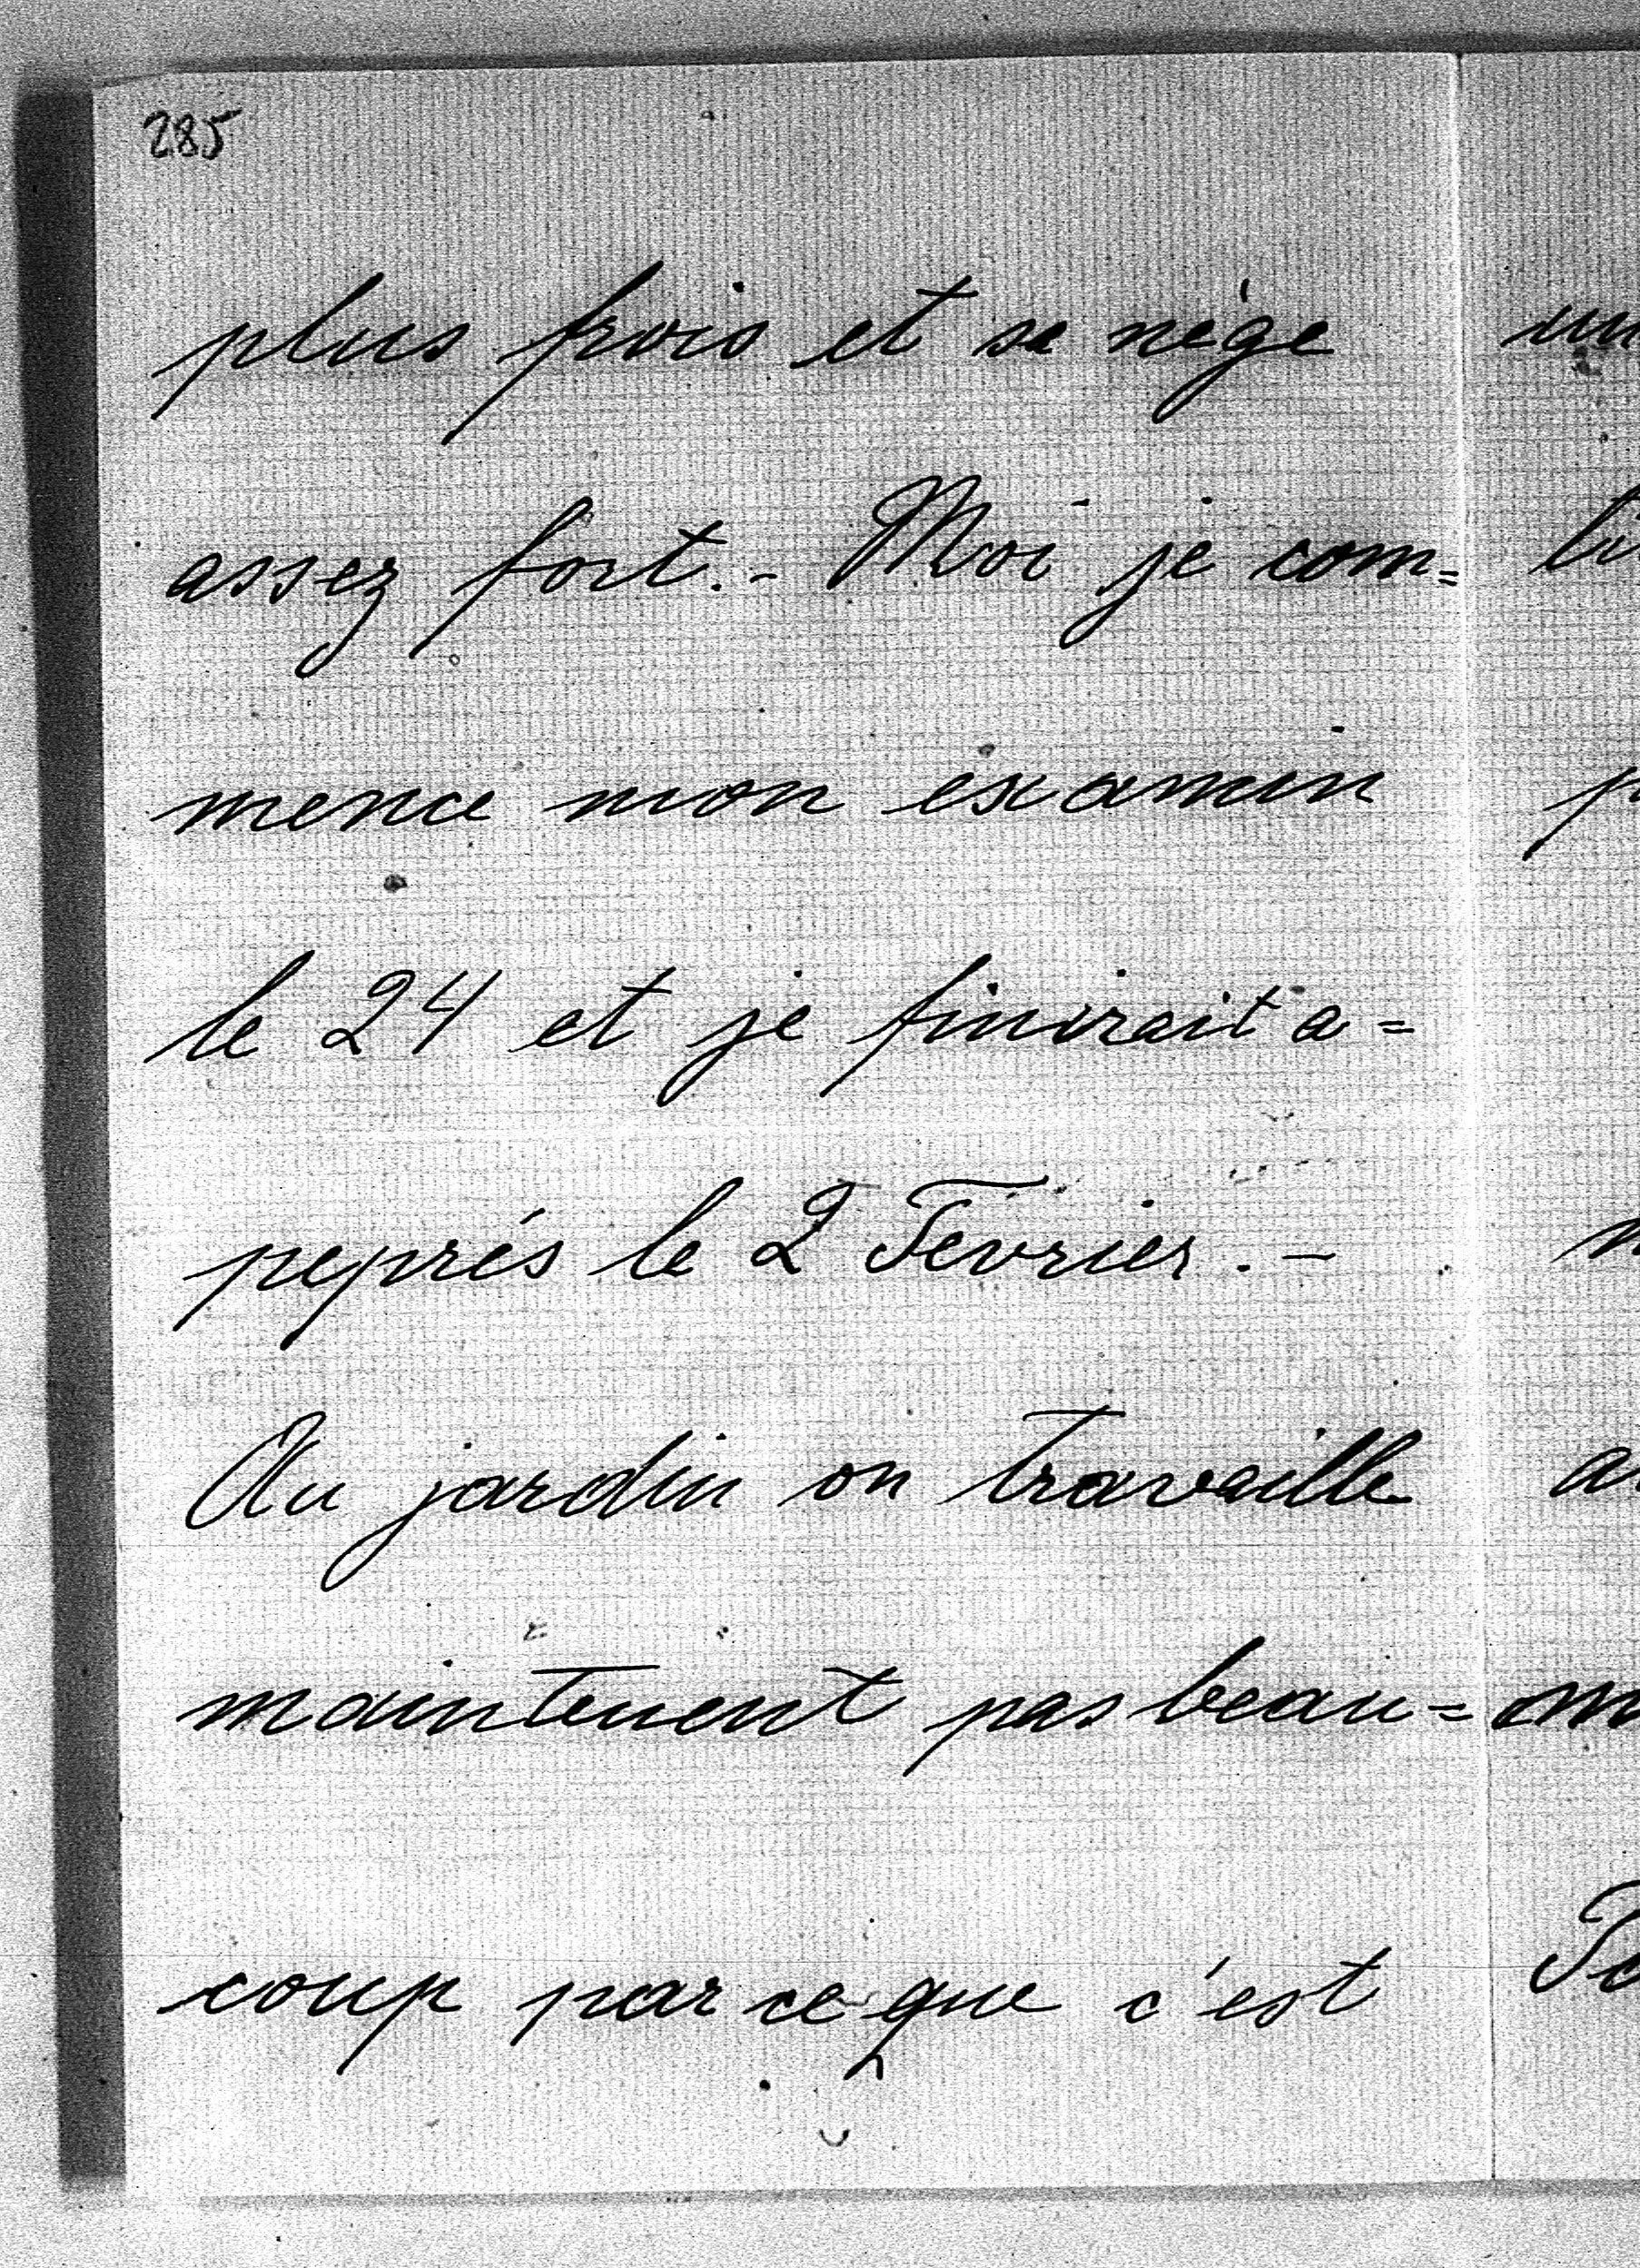 285
plus frois et se nège
assez fort.- Moi je com=
mence mon examin
le 24 et je finirait a=
peprés le 2 Fevrier. -
Au jardin on travaille
maintenent pas beau=
coup par ce que c'est